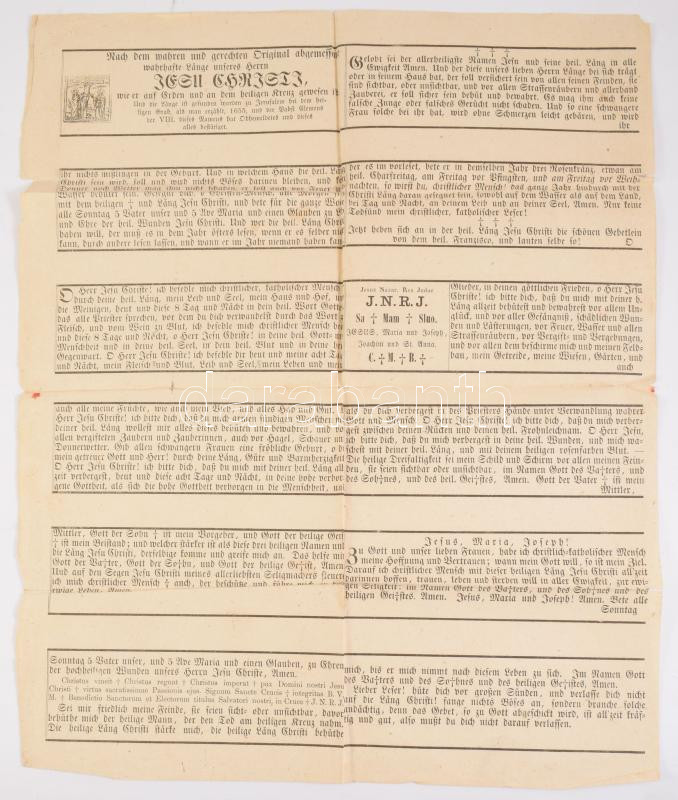 Nach dem wahren und gerechten Original abgemessene
wahrhafte Länge unseres Herrn
JESU CHRISTI,
wie er auf Erden und an dem heiligen Kreuz gewesen ist
Und die Länge ist gefunden worden zu Jerusalem bei dem hei-
ligen Grab, als man erzählt, 1655, und der Pabst Clemens
der VIII. dieses Namens hat Obbemeldetes und dieses
alles bestätiget.
† † †
Gelobt sei der allerheiligste Namen Jesu und seine heil. Läng in alle
Ewigkeit Amen. Und der diese unsers lieben Herrn Länge bei sich trägt
oder in seinem Haus hat, der soll versichert sein von allen seinen Feinden, sie
sind sichtbar, oder unsichtbar, und vor allen Straßenräubern und allerhand
Zauberei, er soll sicher sein behüt und bewahrt. Es mag ihm auch keine
falsche Junge oder falsches Gerücht nicht schaden. Und so eine schwangere
Frau solche bei ihr hat, wird ohne Schmerzen leicht gebären, und wird
ihr
ihr nichts mißlingen in der Geburt. Und in welchem Haus die heil. Läng
Christi sein wird, soll und wird nichts Böses darinen bleiben, und kein
Donner noch Wetter mag ihm nicht schaden, er soll auch vor Feuer und
Wasser behütet sein.
mit dem heiligen † und Läng Jesu Christi, und bete für die ganze Woche
alle Sonntag 5 Vater unser und 5 Ave Maria und einen Glauben zu Lob
und Ehre der heil. Wunden Jesu Christi. Und wer die heil. Läng Christi
haben will, der muß es in dem Jahr öfters lesen, wenn er es selber nicht
kann, durch andere lesen lassen, und wann er im Jahr niemand haben kann,
der es im vorleset, bete er in demselben Jahr drei Rosenkränz, etwan am
heil. Charfreitag, am Freitag vor Pfingsten, und am Freitag vor Weih-
nachten, so wirst du, christlicher Mensch! das ganze Jahr hindurch mit der
Christi Läng daran gesegnet sein, sowohl auf dem Wasser als auf dem Land,
bei Tag und Nacht, an deinem Leib und an deiner Seel, Amen. Nur keine
Todsünd mein christlicher, katholischer Leser!
† † †
Jetzt heben sich an in der heil. Läng Jesu Christi die schönen Gebetlein
von dem heil. Francisco, und lauten selbe so! O
O Herr Jesu Christe! ich befehle mich christlicher, katholischer Mensch
durch deine heil. Läng, mein Leib und Seel, mein Haus und Hof, und
die Meinigen, heut und diese 8 Tag und Nächt in dein heil. Wort Gottes,
das alle Priester sprechen, vor dem du dich verwandelst durch das Wort zu
Fleisch, und vom Wein zu Blut, ich befehle mich christlicher Mensch heut
und diese 8 Tage und Nächt, o Herr Jesu Christe! in deine heil. Gott- und
Menschheit und in deine heil. Seel, in dein heil. Blut und in deine heil.
Gegenwart. O Herr Jesu Christe! ich befehle dir heut und meine acht Tag
und Nächt, mein Fleisch und Blut, Leib und Seel, mein Leben und mein
Jesus Nazar. Rex Judae
J.N.R.J.
Sa † Mam † Sluo.
JESUS, Maria und Joseph,
Joachim und St. Anna.
C. † M. † B. †
Glieder, in deinen göttlichen Frieden, o Herr Jesu
Christe! ich bitte dich, daß du mich mit deiner h.
Läng allzeit behütest und bewahrest vor allem Un-
glück, und vor aller Gefängniß, schädlichen Wun-
den und Lästerungen, vor Feuer, Wasser und allen
Straßenräubern, vor Vergift- und Vergebungen,
und vor allen dem beschirme mich und meinen Feld-
bau, mein Getreide, meine Wiesen, Gärten, und
auch
auch alle meine Früchte, wie auch mein Vieh, und alles Hab und Gut. O
Herr Jesu Christe! ich bitte dich, daß du mich armen sündigen Menschen mit
deiner heil. Läng wollest mir alles dieses behüten und bewahren, und vor
allen vergifteten Zaubern und Zauberinnen, auch vor Hagel, Schauer und
Donnerwetter. Gib allen schwangern Frauen eine fröhliche Geburt, o du
mein getreuer Gott und Herr! durch deine Läng, Güte und Barmherzigkeit.
O Herr Jesu Christe! ich bitte dich, daß du mich mit deiner heil. Läng all-
zeit verbergest, heut und diese acht Tag und Nächt, in deine hohe verbor-
gene Gottheit, als sich die hohe Gottheit verborgen in die Menschheit, und
als du dich verbergest in des Priesters Hände unter Verwandlung wahrer
Gott und Mensch. O Herr Jesu Christe! ich bitte dich, daß du mich verber-
gest zwischen deinen Rücken und deinen heil. Frohnleichnam. O Herr Jesu,
ich bitte dich, daß du mich verbergest in deine heil. Wunden, und mich wa-
schest mit deiner heil. Läng, und mit deinem heiligen rosenfarben Blut. —
Die heilige Dreifaltigkeit sei mein Schild und Schirm vor allen meinen Fein-
den, sie seien sichtbar oder unsichtbar, im Namen Gott des Va†ters, und
des Soh†nes, und des heil. Gei†stes, Amen. Gott der Vater † ist mein
Mittler,
Mittler, Gott der Sohn † ist mein Vorgeher, und Gott der heilige Geist
† ist mein Beistand; und welcher stärker ist als diese drei heiligen Namen und
die Läng Jesu Christi, derselbige komme und greife mich an. Das helfe mir
Gott der Va†ter, Gott der So†hn, und Gott der heilige Ge†ist, Amen.
Und auf den Segen Jesu Christi meines allerliebsten Seligmachers steuere
ich mich christlicher Mensch † auch, der beschütze und führe mich in das
ewige Leben. Amen.
Jesus, Maria, Joseph!
Zu Gott und unser lieben Frauen, habe ich christlich-katholischer Mensch
meine Hoffnung und Vertrauen; wann mein Gott will, so ist mein Ziel.
Darauf ich christlicher Mensch mit dieser heiligen Läng Jesu Christi all'zeit
darinnen hoffen, trauen, leben und sterben will in aller Ewigkeit, zur ewi-
gen Seligkeit; im Namen Gott des Va†ters, und des Soh†nes und des
heiligen Gei†stes. Amen. Jesus, Maria und Joseph! Amen. Bete alle
Sonntag
Sonntag 5 Vater unser, und 5 Ave Maria und einen Glauben, zu Ehren
der hochheiligen Wunden unsers Herrn Jesu Christe, Amen.
Christus vincit † Christus regnat † Christus imperat † pax Domini nostri Jesu
Christi † virtus sacratissimae Passionis ejus. Signum Sancte Crucis † integritas B. V.
M. † Benedictio Sanctorum et Electorum titulus Salvatori nostri, in Cruce † J. N. R. J.
Sei mir friedlich meine Feinde, sie seien sicht- oder unsichtbar, davor
behüthe mich der heilige Mann, der den Tod am heiligen Kreuz nahm.
Die heilige Läng Christi stärke mich, die heilige Läng Christi behüthe
mich, bis er mich nimmt nach diesem Leben zu sich. Im Namen Gott
des Va†ters und des So†hnes und des heiligen Ge†istes, Amen.
Lieber Leser! hüte dich vor großen Sünden, und verlasse dich nicht
auf die Läng Christi! fange nichts Böses an, sondern brauche solche
andächtig, denn das Gebet, so zu Gott abgeschickt wird, ist all'zeit kräf-
tig und gut, also mußt du dich nicht darauf verlassen.
darabanth